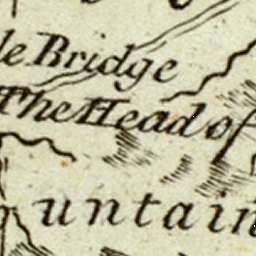 le Bridge
The Head of
untain